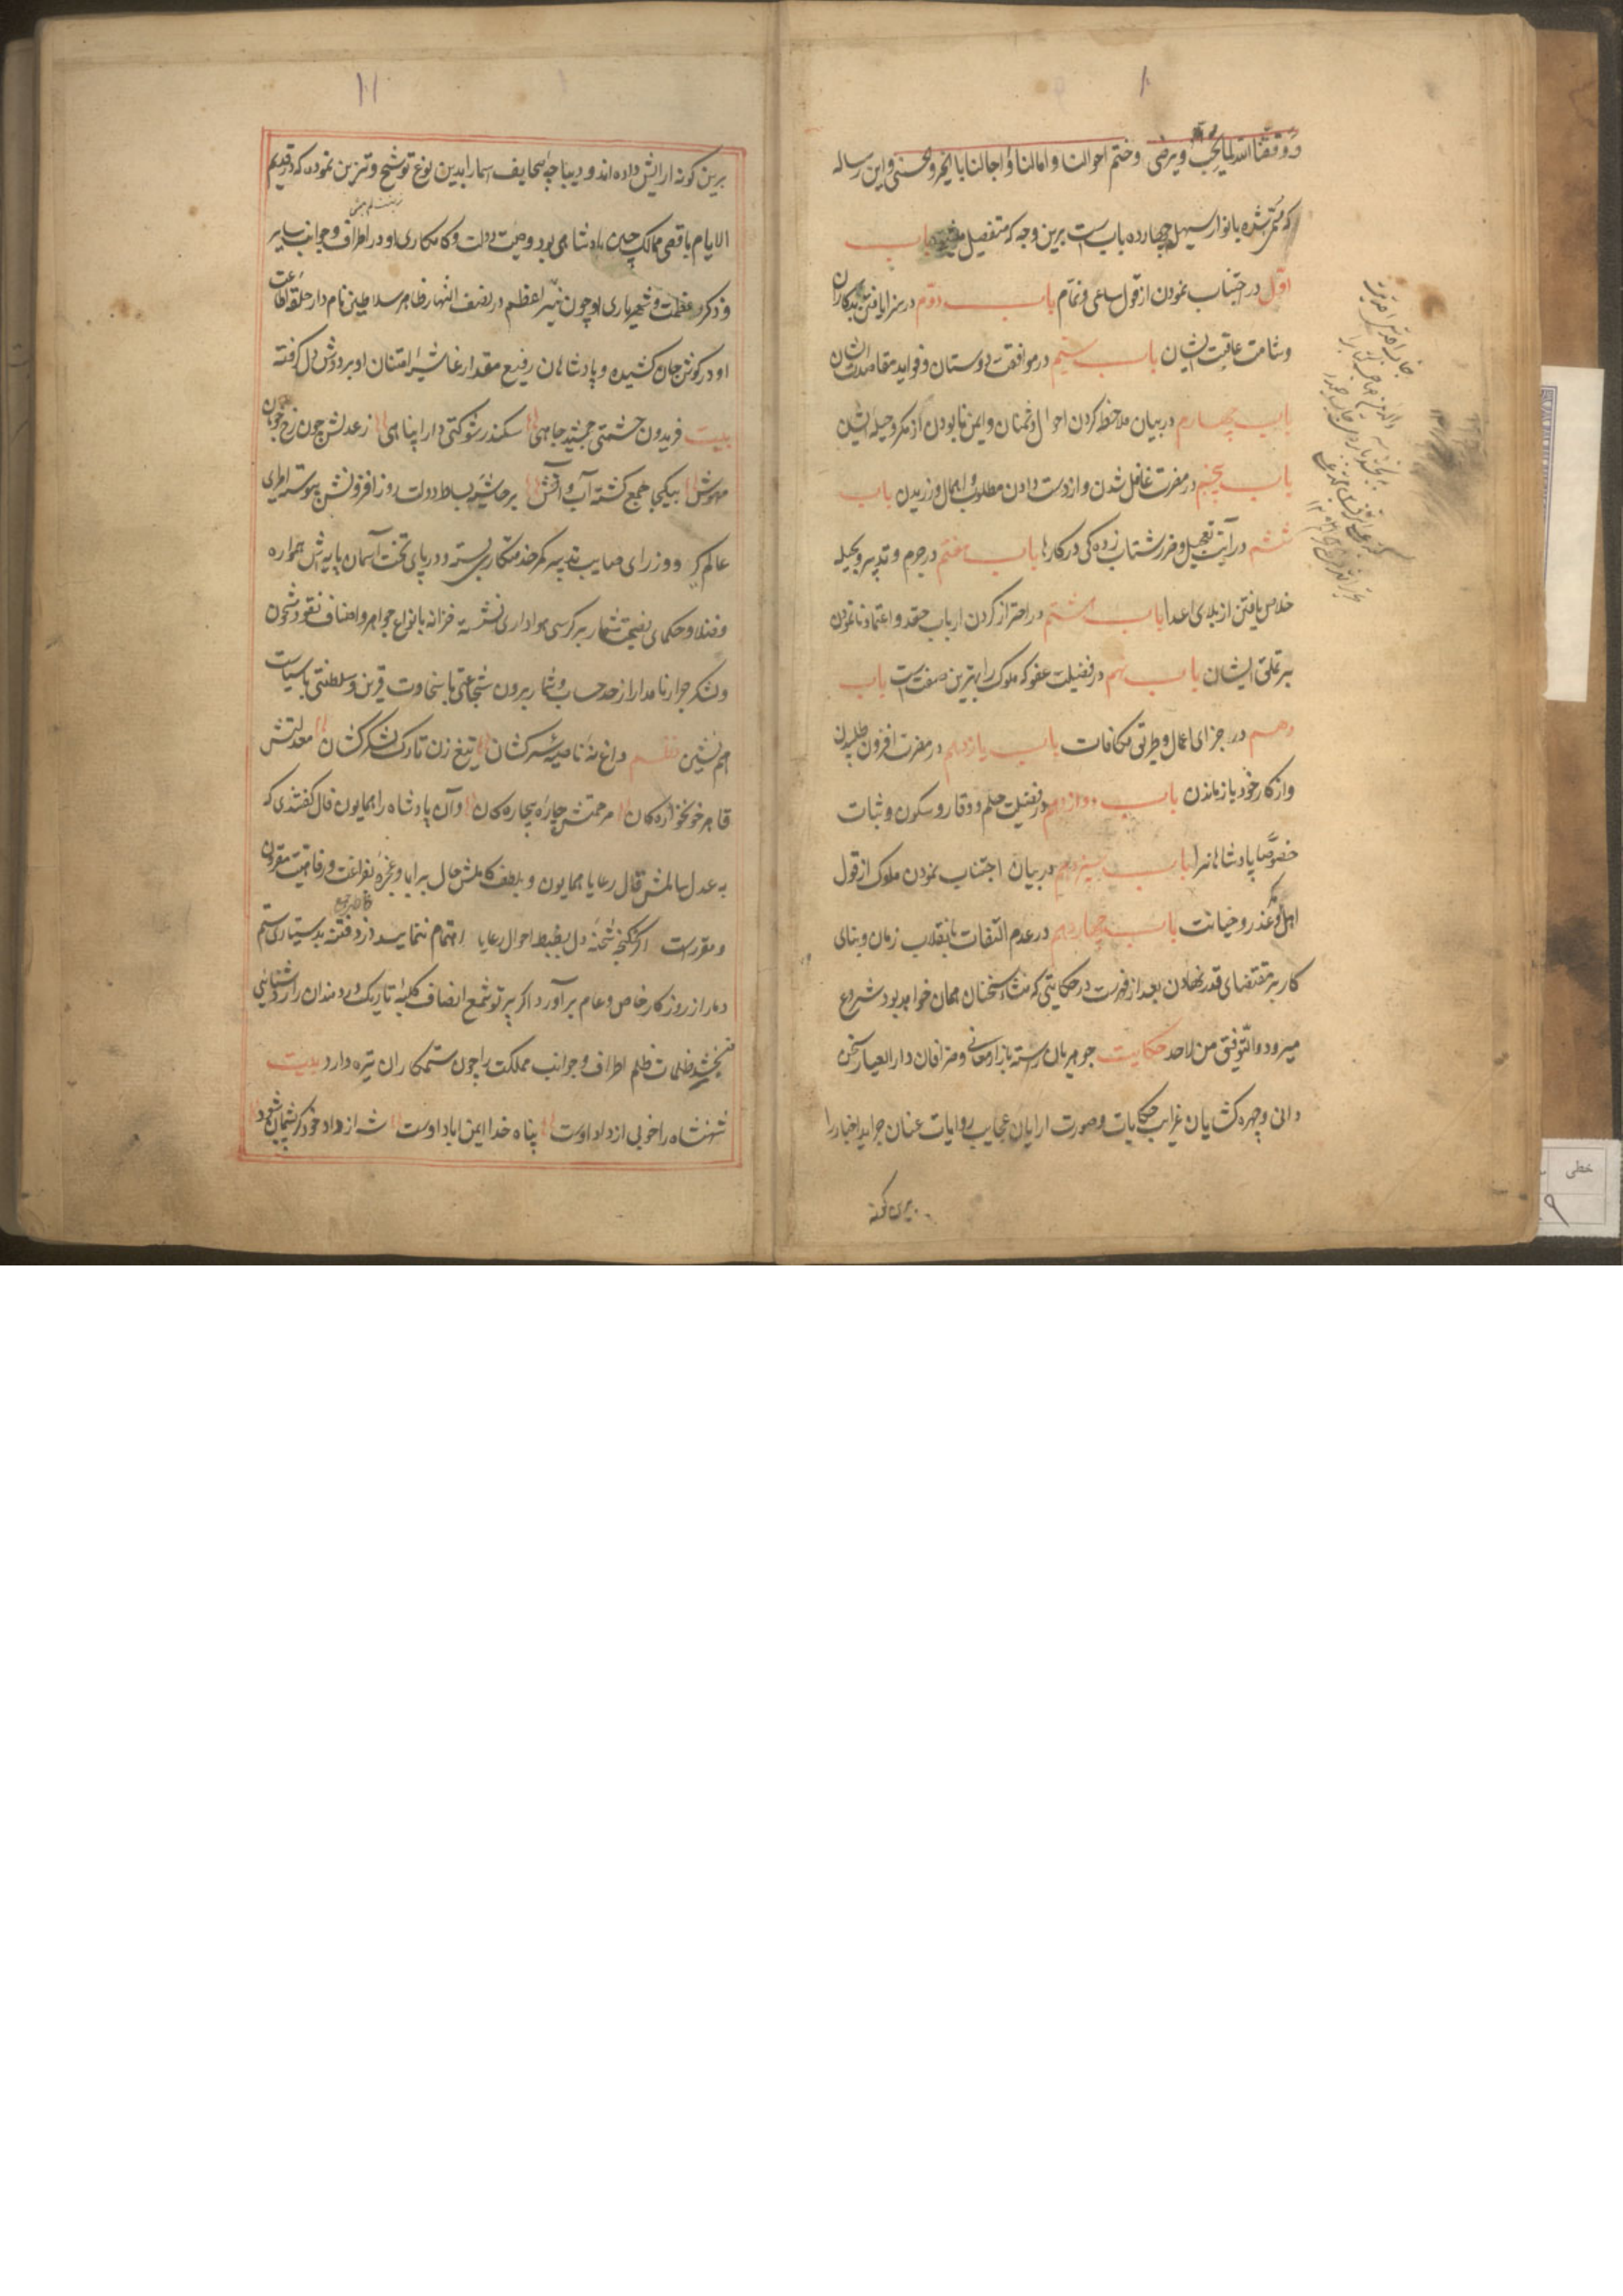 ۱۰
ووفقنا الله لما یحب ویرضی وختم احوالنا وامالنا واجالنا بالخیر والحسنی واین رساله
که مسمی شده بانوار سهیلی چهارده باب است برین وجه که متفصل میشود باب
اول در اجتناب نمودن از قول ساعی ونمام باب دوم در سزا یافتن بدکاران
وشامت عاقبت ایشان باب سیم در موافقت دوستان وفواید معاضدت ایشان
باب چهارم در بیان ملاحظه کردن احوال دشمنان وایمن نابودن از مکر وحیله ایشان
باب پنجم در مضرت غافل شدن واز دست دادن مطلوب واهمال ورزیدن باب
ششم در آفت تعجیل وضرر شتاب زدگی در کارها باب هفتم در حزم وتدبیر وبحیله
خلاص یافتن از بلای اعدا باب هشتم در احتراز کردن از ارباب حقد واعتماد نانمودن
بر تملق ایشان باب نهم در فضیلت عفو که ملوک را بهترین صفت است باب
دهم در جزای اعمال وطریق مکافات باب یازدهم در مضرت افزون طلبیدن
واز کار خود بازماندن باب دوازدهم در فضیلت حلم ووقار وسکون وثبات
خصوصا پادشاهانرا باب سیزدهم در بیان اجتناب نمودن ملوک از قول
اهل غدر وخیانت باب چهاردهم در عدم التفات بانقلاب زمان وبنای
کار بر مقتضای قدر نهادن بعد از فهرست در حکایتی که منشاء سخنان همان خواهد بود شروع
میرود والتوفیق من الاحد حکایت جوهریان رسته بازار معانی وصرافان دارالعیار سخن
دانی وچهره کشایان غرایب حکایات وصورت ارایان عجایب روایات عنان جراید اخبار را
برین کونه
۱۱
برین کونه ارایش داده اند ودیباچه صحایف اسمار ا بدین نوع توشیح وتزیین نموده که در قدیم
الایام باقصی ممالک چین پادشاهی بود وصیت دولت وکامکاری او در اطراف وجوانب سایر
وذکر عظمت وشهریاری او چون نیر اعظم در نصف النهار ظاهر سلاطین نام دار حلقه اطاعت
او در کوش جان کشیده وپادشاهان رفیع مقدار غاشیه امتنان او بر دوش دل کرفته
بیت فریدون حشمتی جمشید جاهی سکندر شوکتی دارا پناهی ز عدلش چون رخ خوبان
مهوش بیکجا جمع کشته آب وآتش بر حاشیه بساط دولت روز افزونش پیوسته امرای
عالم کیر ووزرای صایب تدبیر کمر خدمتکاری بسته ودر پای تخت آسمان پایه اش همواره
وفضلا وحکمای نصیحت شعار بر کرسی هواداری نشسته خزانه بانواع جواهر واصناف نقود مشحون
ولشکر جرار نامدار از حد حساب وشمار بیرون شجاعتی با سخاوت قرین وسلطنتی با سیاست
هم نشین نظم داغ نه ناصیه سرکشان تیغ زن تارک لشکرکشان معدلتش
قاهر خونخواره کان مرحمتش چاره بیچاره کان وآن پادشاه را همایون فال کفتندی که
به عدل شاملش فال رعایا همایون وبلطف کاملش حال برایا وعجزه بفراغت ورفاهیت مقرون
ومقررست اکر نه شحنه دل بضبط احوال رعایا اهتمام ننماید دزد فتنه بدستیاری ستم
دمار از روزکار خاص وعام برآورد اکر پرتو شمع انصاف کلبه تاریک دردمندان را روشنایی
نبخشد ظلمات ظلم اطراف وجوانب مملکت را چون دل ستمکاران تیره دارد بیت
شهنشاه را خوبی از داد اوست پناه خدا ایمن اباد اوست شه از داد خود کر پشیمان شود
خطی
۹